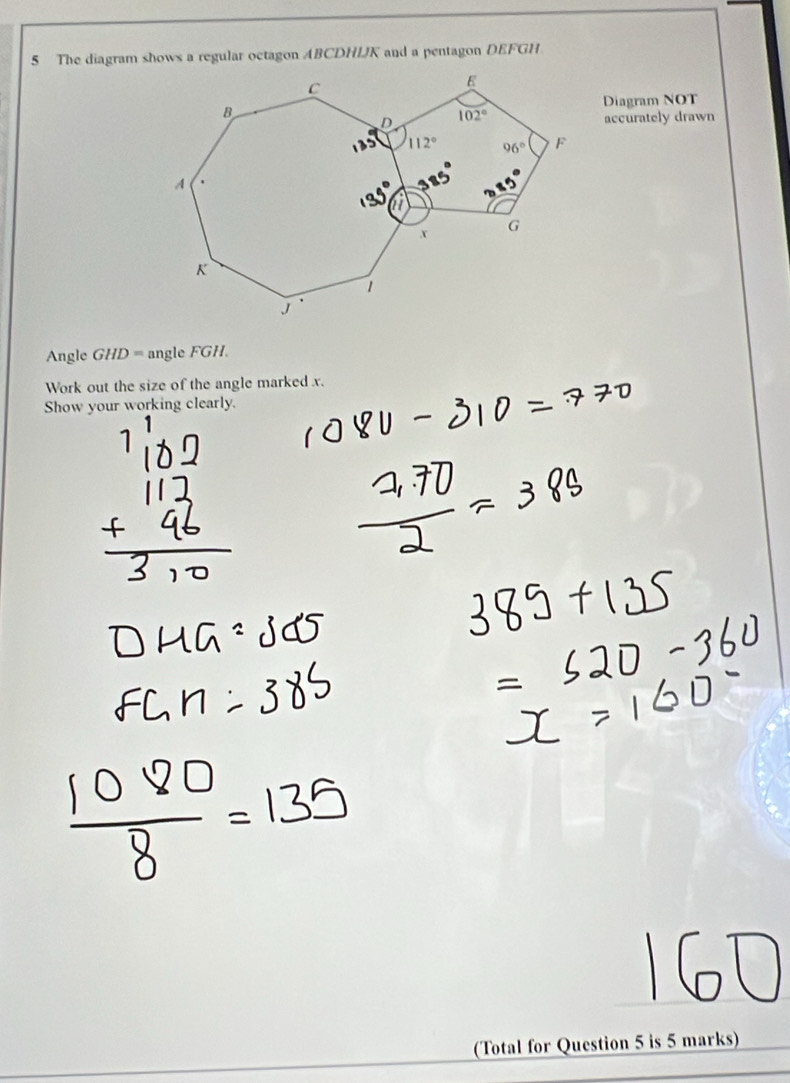 5 The diagram shows a regular octagon ABCDHIJK and a pentagon DEFGH.
C
E
Diagram NOT
accurately drawn
B
D
102°
135°
112°
96°
F
A
135°
H
385°
385°
x
G
K
I
J
Angle GHD = angle FGH.
Work out the size of the angle marked x.
Show your working clearly.
1080 - 310 = 770
1 1
102
112
+ 96
310
770
2
= 385
DHG = 385
FGH = 385
385 + 135
= 520 - 360
x = 160
1080
8
= 135
160
(Total for Question 5 is 5 marks)